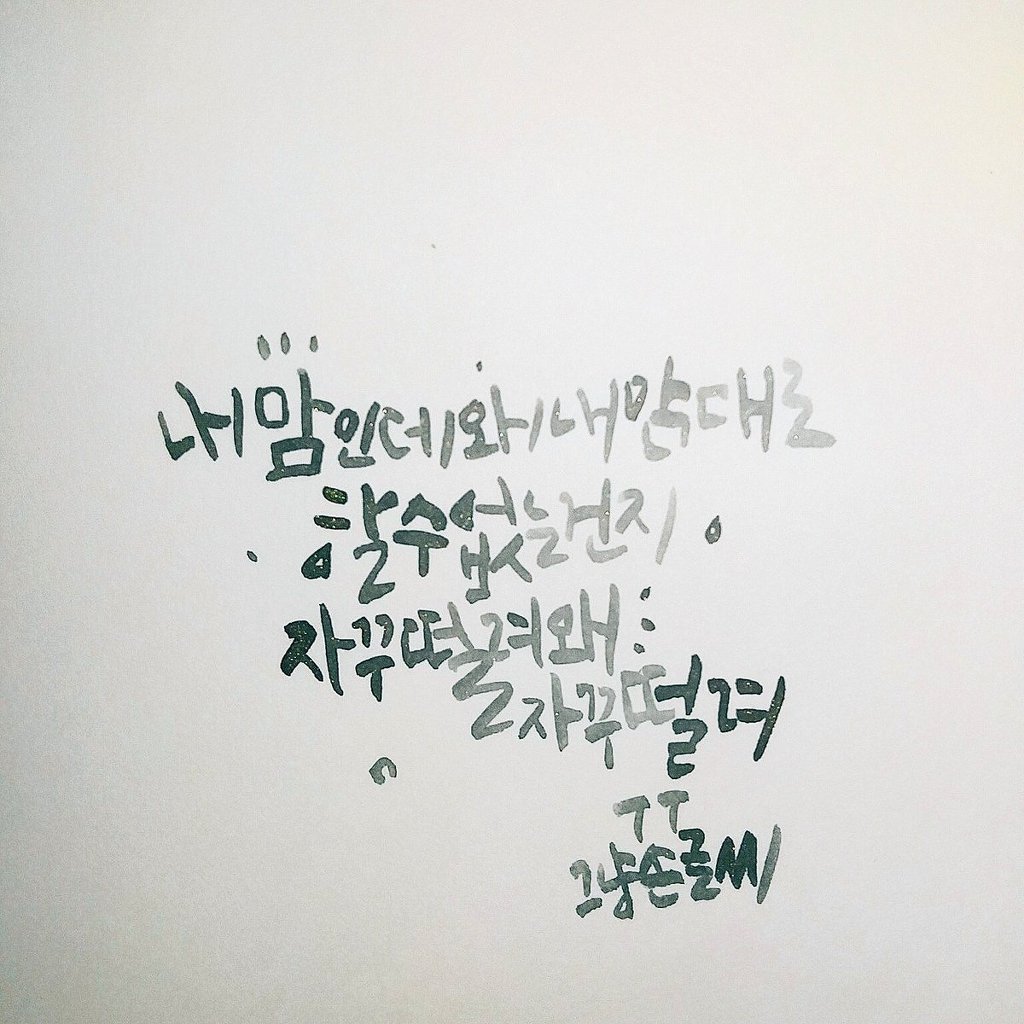 내맘인데왜내맘대로
할수없는건지
자꾸떨려왜
자꾸떨려
ㅜㅜ
그냥손글씨